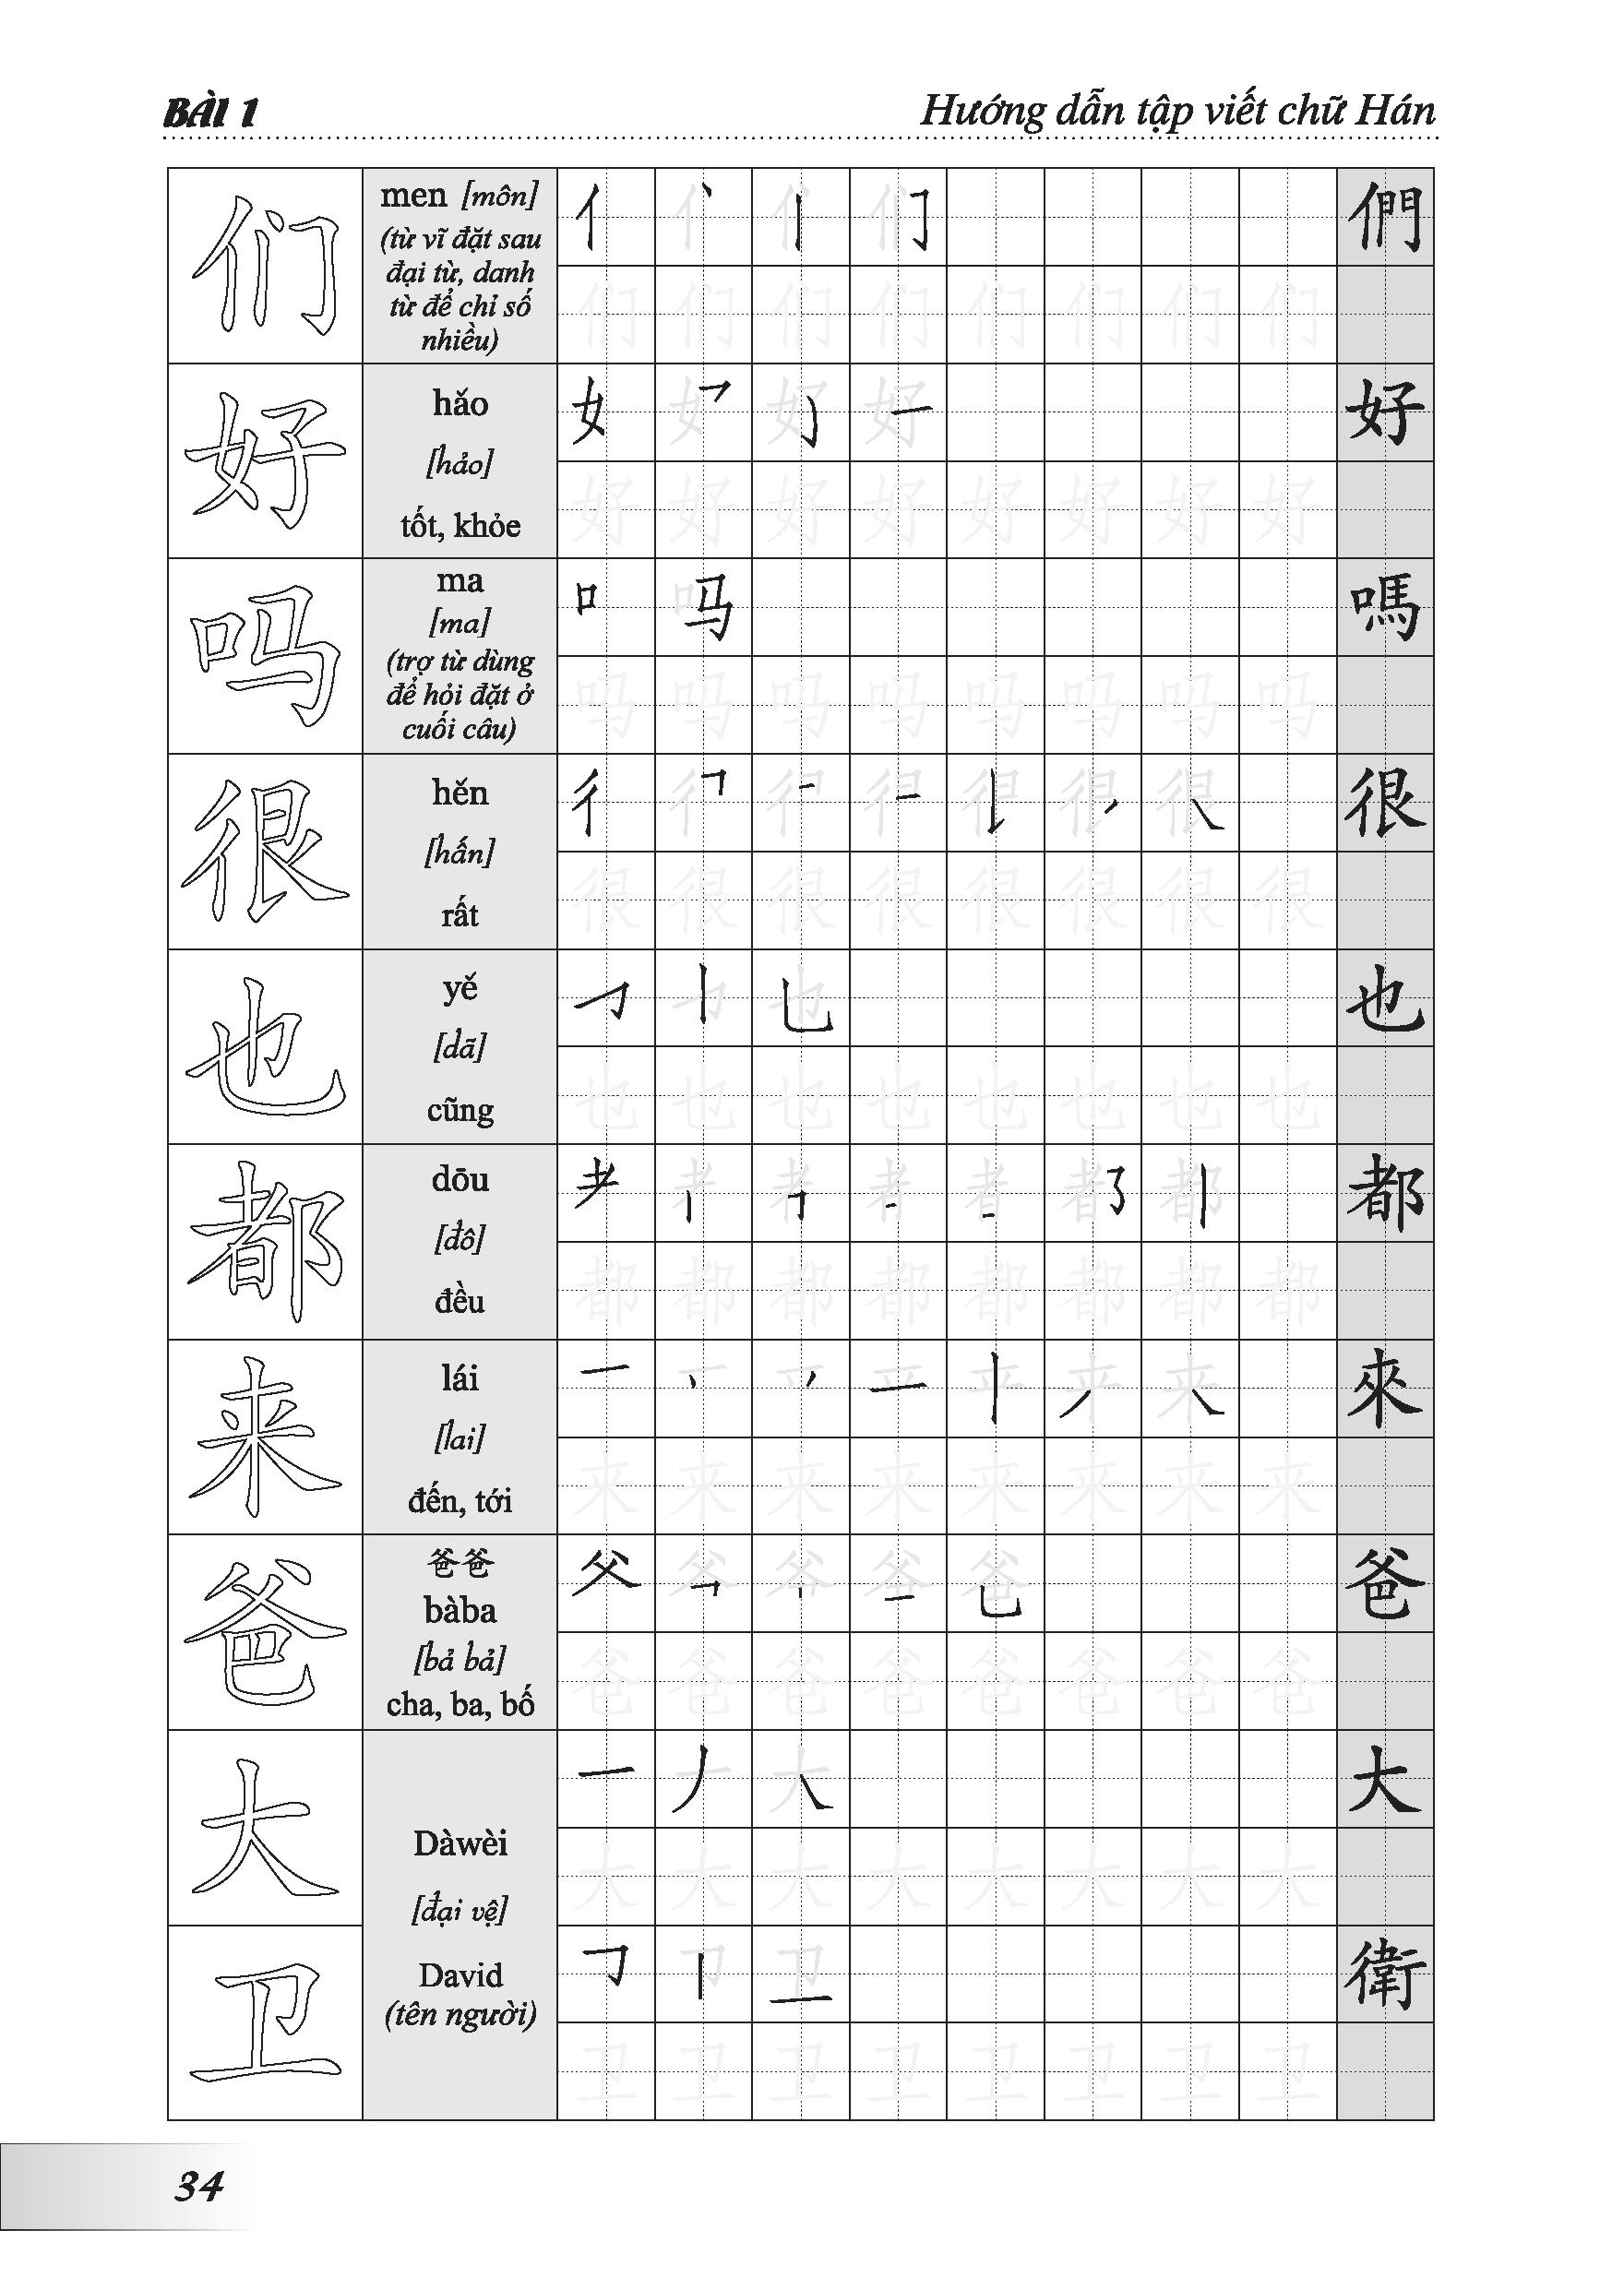 BÀI 1
Hướng dẫn tập viết chữ Hán
们
men [môn]
(từ vĩ đặt sau
đại từ, danh
từ để chỉ số
nhiều)
們
们 们 们 们 们 们 们 们
好
hǎo
[hảo]
tốt, khỏe
好
好 好 好 好 好 好 好 好
吗
ma
[ma]
(trợ từ dùng
để hỏi đặt ở
cuối câu)
嗎
吗 吗 吗 吗 吗 吗 吗 吗
很
hěn
[hấn]
rất
很
很 很 很 很 很 很 很 很
也
yě
[dã]
cũng
也
也 也 也 也 也 也 也 也
都
dōu
[đô]
đều
都
都 都 都 都 都 都 都 都
来
lái
[lai]
đến, tới
來
来 来 来 来 来 来 来 来
爸
爸爸
bàba
[bả bả]
cha, ba, bố
爸
爸 爸 爸 爸 爸 爸 爸 爸
大
大
大 大 大 大 大 大 大 大
Dàwèi
[đại vệ]
David
(tên người)
卫
衛
卫 卫 卫 卫 卫 卫 卫 卫
34